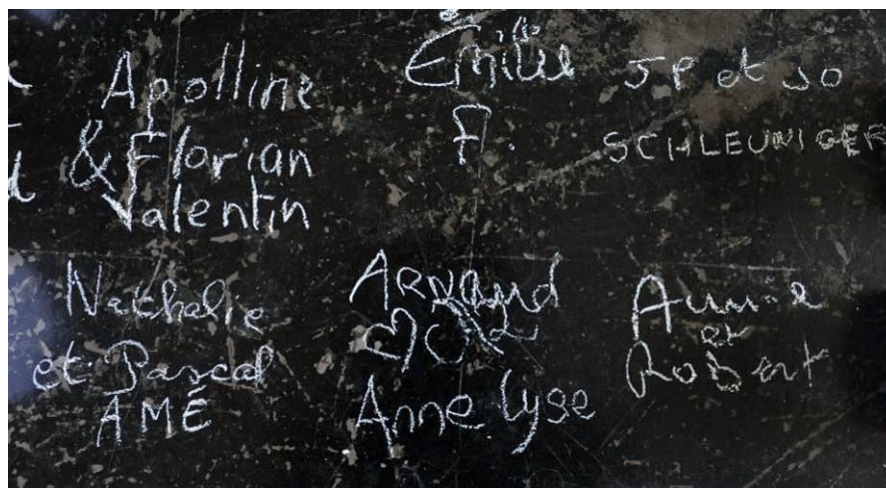 Apolline
& Florian
Valentin
Émilie
F.
JP et Jo
SCHLEUNIGER
Nathalie
et Pascal
AMÉ
Arnaud
Anne Lyse
Annie
et
Robert